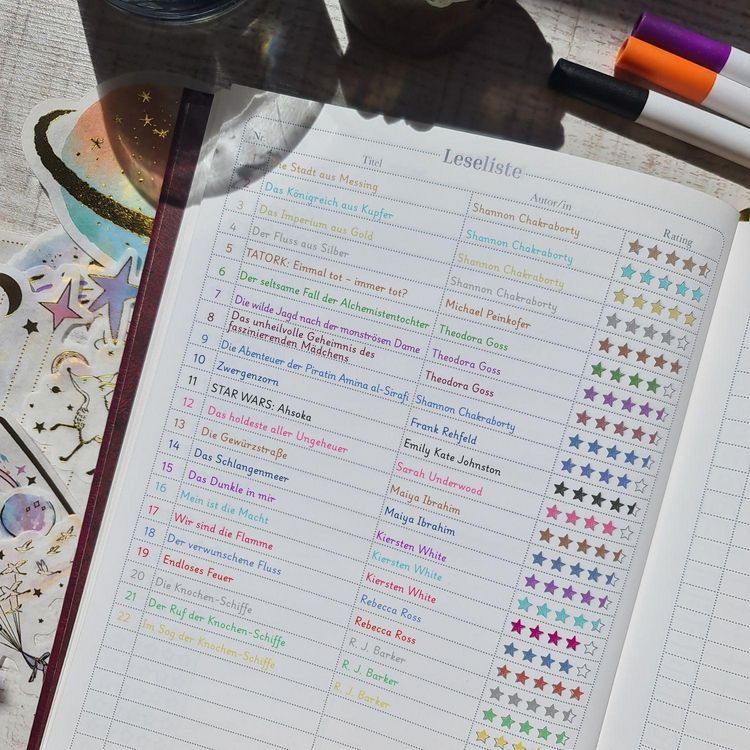 Leseliste
Titel Autor/in Rating
Stadt aus Messing Shannon Chakraborty
Das Königreich aus Kupfer Shannon Chakraborty
3 Das Imperium aus Gold Shannon Chakraborty
4 Der Fluss aus Silber Shannon Chakraborty
5 TATORK: Einmal tot - immer tot? Michael Peinkofer
6 Der seltsame Fall der Alchemistentochter Theodora Goss
7 Die wilde Jagd nach der monströsen Dame Theodora Goss
8 Das unheilvolle Geheimnis des
faszinierenden Mädchens Theodora Goss
9 Die Abenteuer der Piratin Amina al-Sirafi Shannon Chakraborty
10 Zwergenzorn Frank Rehfeld
11 STAR WARS: Ahsoka Emily Kate Johnston
12 Das holdeste aller Ungeheuer Sarah Underwood
13 Die Gewürzstraße Maiya Ibrahim
14 Das Schlangenmeer Maiya Ibrahim
15 Das Dunkle in mir Kiersten White
16 Mein ist die Macht Kiersten White
17 Wir sind die Flamme Kiersten White
18 Der verwunschene Fluss Rebecca Ross
19 Endloses Feuer Rebecca Ross
20 Die Knochen-Schiffe R. J. Barker
21 Der Ruf der Knochen-Schiffe R. J. Barker
22 Im Sog der Knochen-Schiffe R. J. Barker